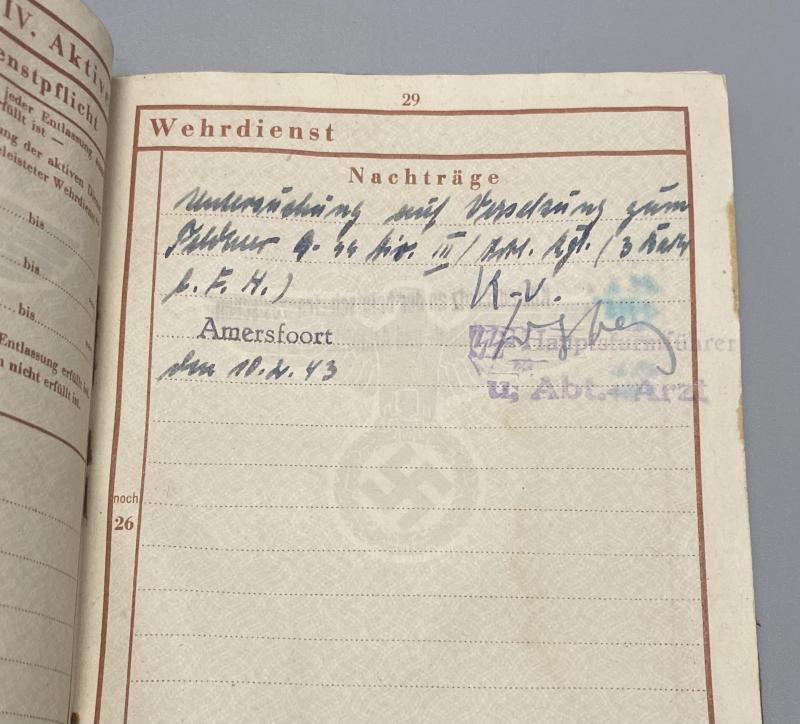 IV. Aktive
enstpflicht
jeder Entlassung
rfüllt ist —
ung der aktiven Dienst
eleisteter Wehrdienst
bis
bis
bis
Entlassung erfüllt ist.
nicht erfüllt ist.
29
Wehrdienst
Nachträge
Untersuchung auf Versetzung zum
Feldheer 9. SS Div. III / Art. Rgt. (3
l. F. H.) K.v.
Amersfoort
den 10.2.43
SS-Hauptsturmführer
u. Abt.-Arzt
noch
26